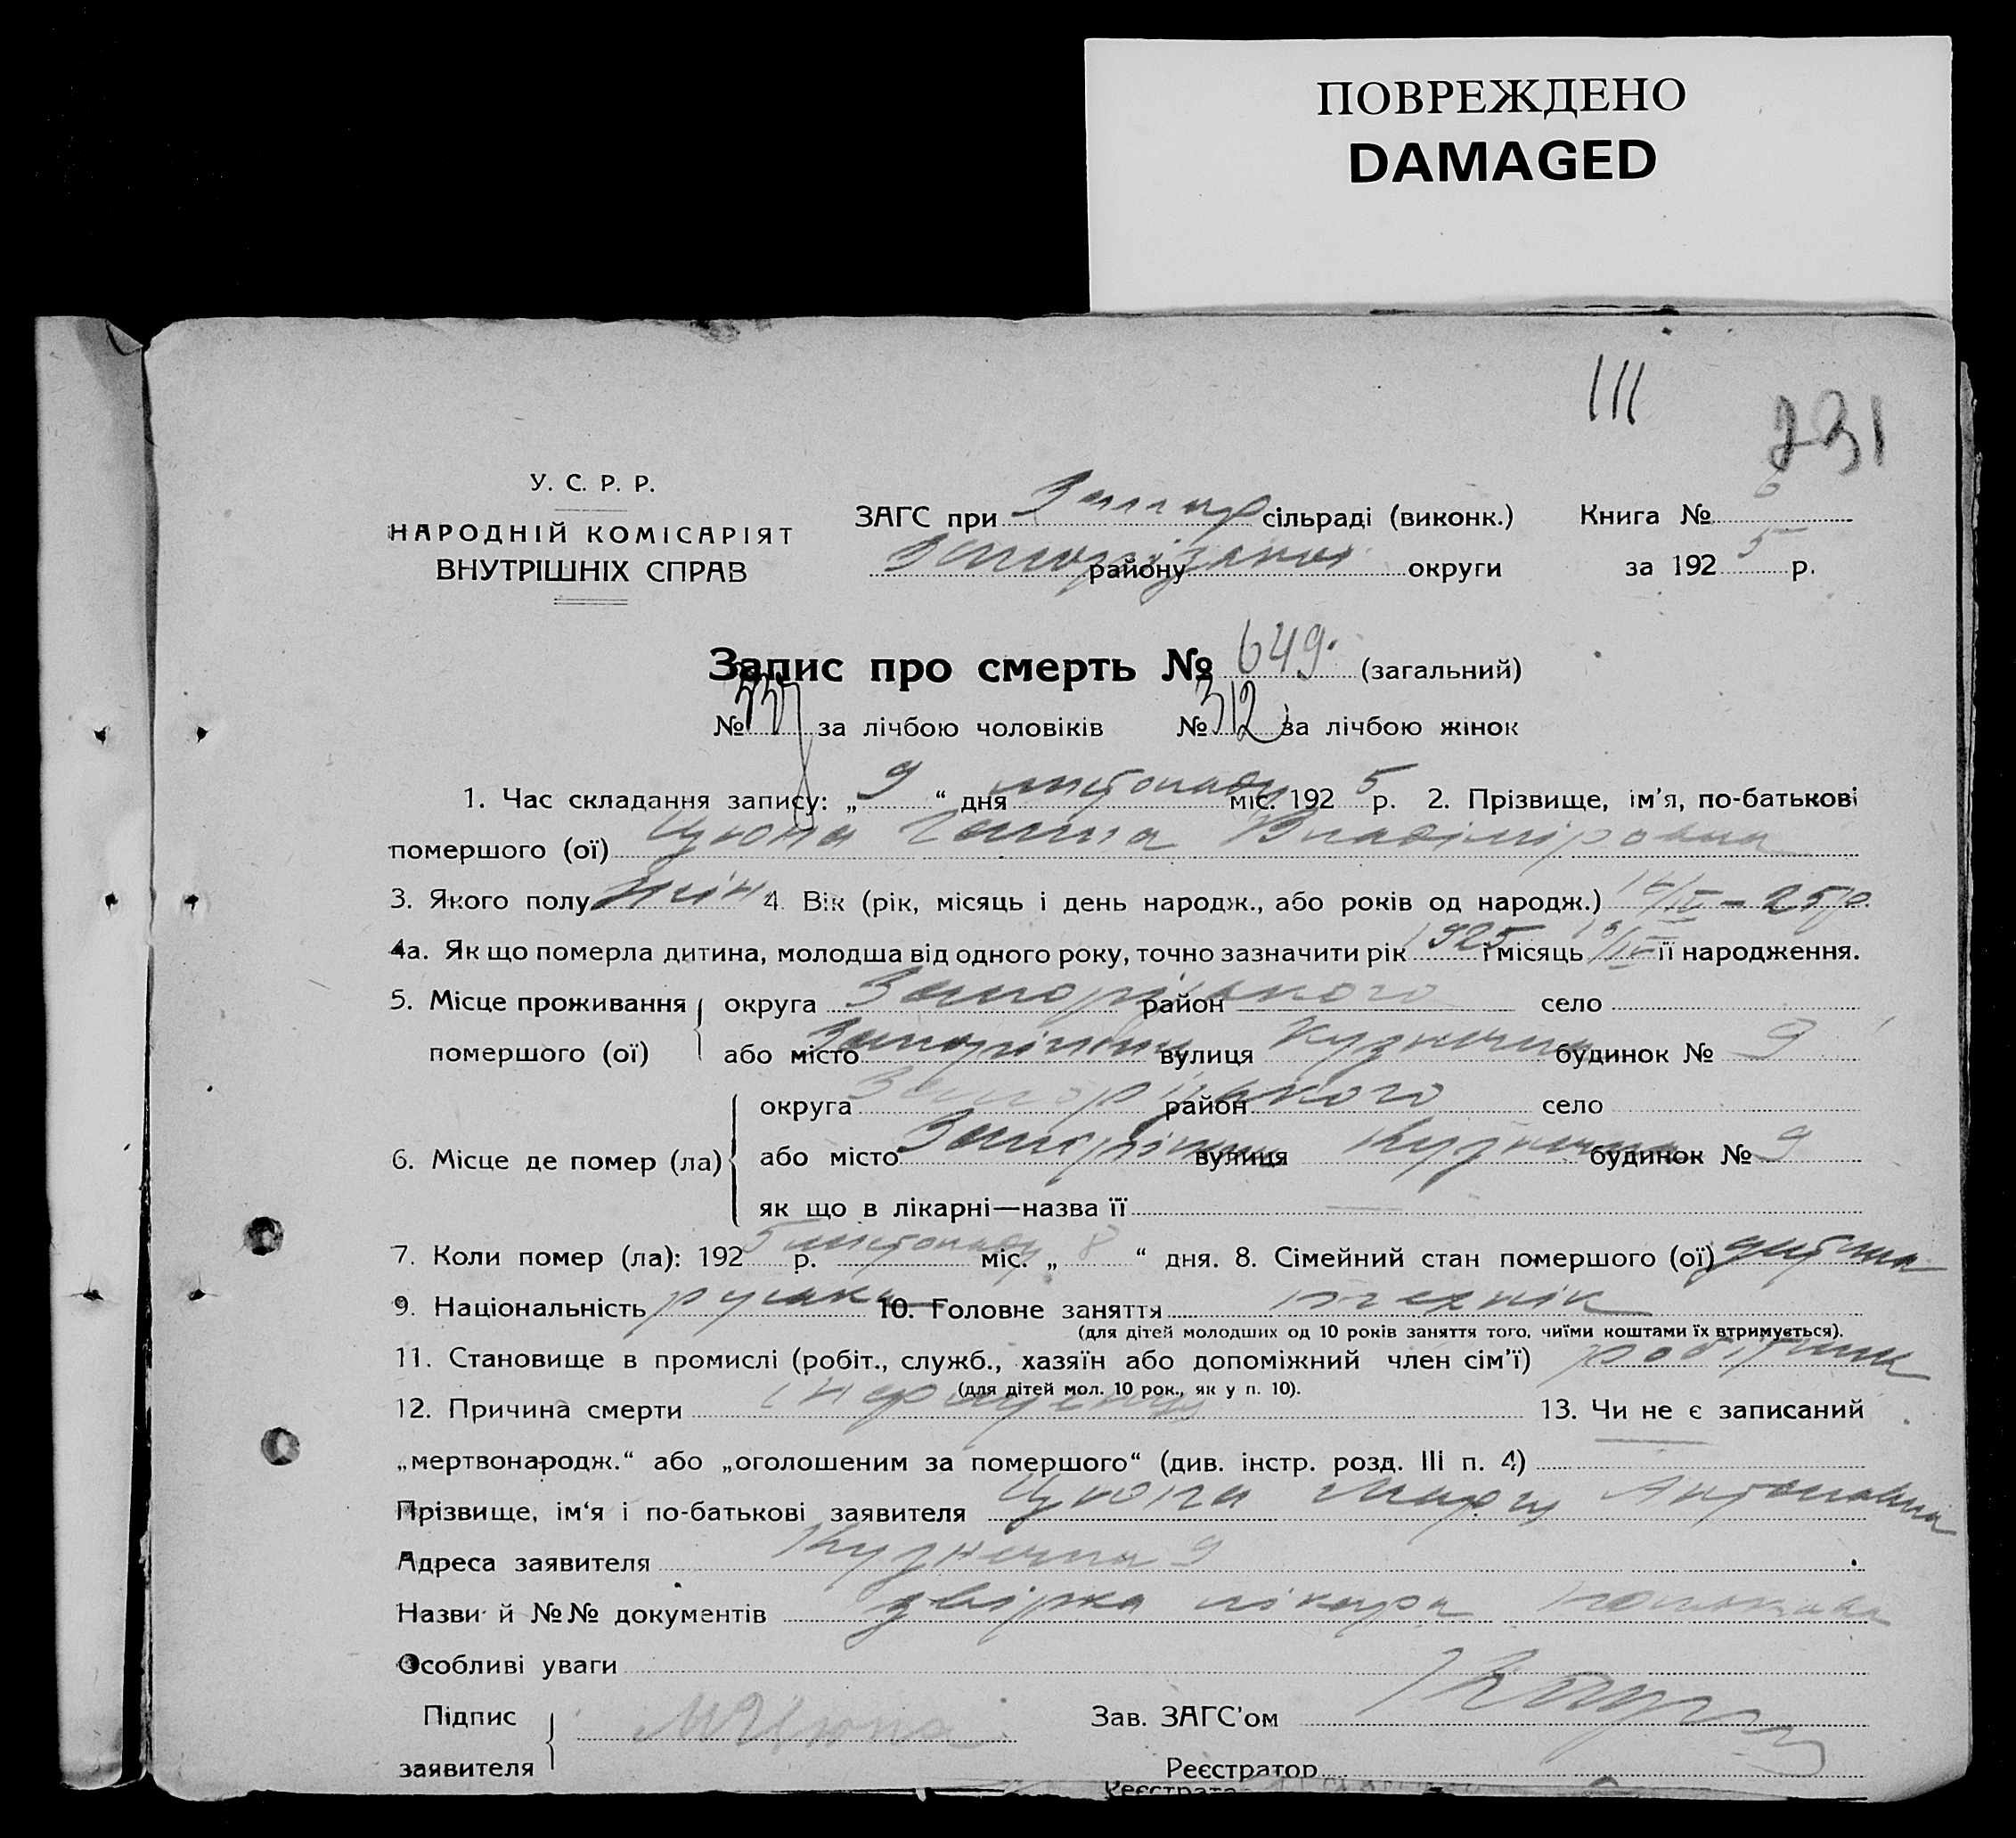 ПОВРЕЖДЕНО
DAMAGED
III
231
У. С. Р. Р.
НАРОДНІЙ КОМІСАРІЯТ
ВНУТРІШНІХ СПРАВ
ЗАГС при сільраді (виконк.) Книга № 6
району округи за 1925 р.
Запис про смерть № 649. (загальний)
№ 337 за лічбою чоловіків № 312 за лічбою жінок
1. Час складання запису: „ 9 “ дня листопаду міс. 1925 р. 2. Прізвище, ім’я, по-батькові
помершого (ої) Цюпа Галина Владіміровна
3. Якого полу жін 4. Вік (рік, місяць і день народж., або років од народж.) 16/IV – 25 р.
4а. Як що померла дитина, молодша від одного року, точно зазначити рік 1925 і місяць 16/IV її народження.
5. Місце проживання округа Запорізького район село
помершого (ої) або місто Запоріжжя вулиця Кузнечна будинок № 9
округа Запорізького район село
6. Місце де помер (ла) або місто Запоріжжя вулиця Кузнечна будинок № 9
як що в лікарні—назва її —
7. Коли помер (ла): 1925 р. листопаду міс. „ 8 “ дня. 8. Сімейний стан помершого (ої) дитина
9. Національність руська 10. Головне заняття технік
(для дітей молодших од 10 років заняття того, чиїми коштами їх втримується).
11. Становище в промислі (робіт., служб., хазяїн або допоміжний член сім’ї) робітник
(для дітей мол. 10 рок., як у п. 10).
12. Причина смерти 13. Чи не є записаний
„мертвонародж.“ або „оголошеним за помершого“ (див. інстр. розд. III п. 4) —
Прізвище, ім‘я і по-батькові заявителя Цюпа Антоновна
Адреса заявителя Кузнечна 9
Назви й №№ документів лікаря
Особливі уваги
Підпис МЦюпа Зав. ЗАГС’ом
заявителя Реєстратор